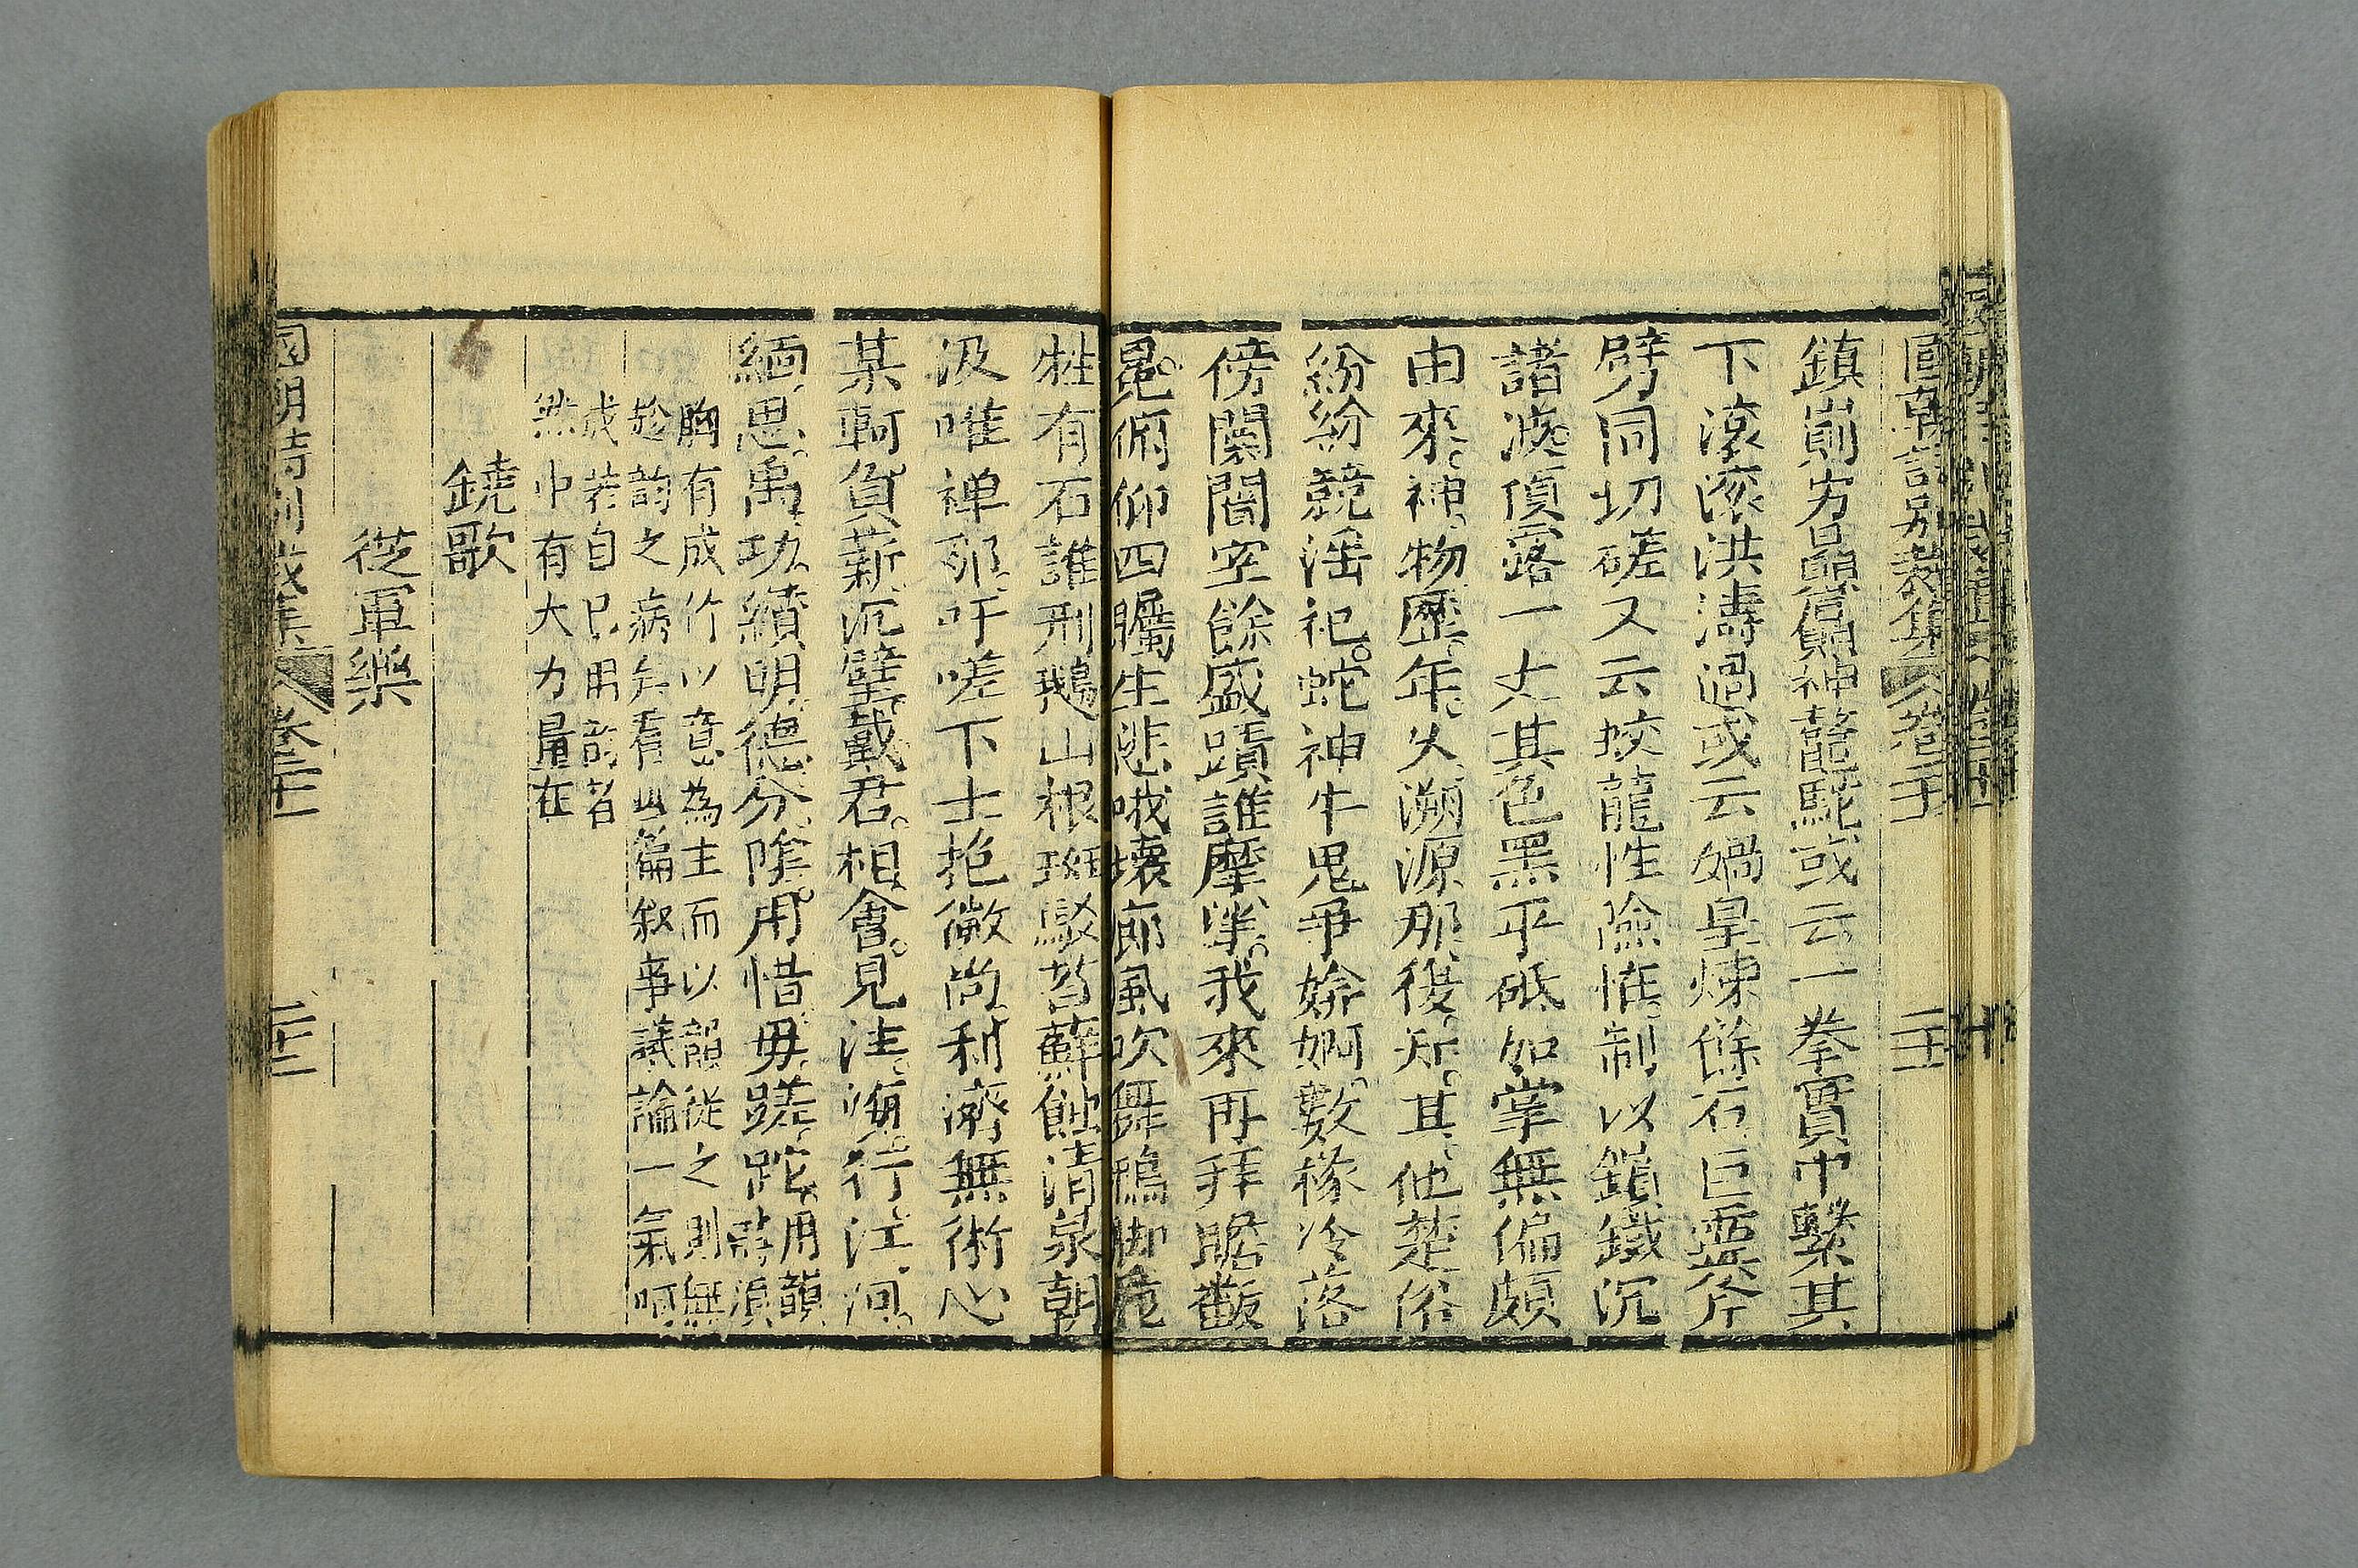 國朝詩別裁集 卷二十 二十一
鎮崱屴贔屭神鼇駝或云一拳實中繫其
下滾滾洪濤過或云媧皇煉餘石巨靈斧
劈同切磋又云蛟龍性險怪制以鎖鐵沉
諸波頂露一丈其色黑平砥如掌無偏頗
由來神物歷年久溯源那復知其他楚俗
紛紛競淫祀蛇神牛鬼爭媕婀數椽冷落
傍闤闠空餘盛蹟誰摩挲我來再拜瞻黻
冕俯仰四矚生悲哦壞廊風吹舞鴉脚危
牲有石誰刑鵝山根斑駁苔蘚蝕清泉朝
汲唯禪那吁嗟下士抱微尚利濟無術心
某軻負薪沉璧戴君相會見注海行江河
緬思禹功續明德分陰用惜毋蹉跎用韻詩須
胸有成竹以意為主而以韻從之則無
趁韵之病矣看此篇叙事議論一氣呵
成若自己用韵者
然中有大力量在
鐃歌
從軍樂
國朝詩別裁集 卷二十 二十二